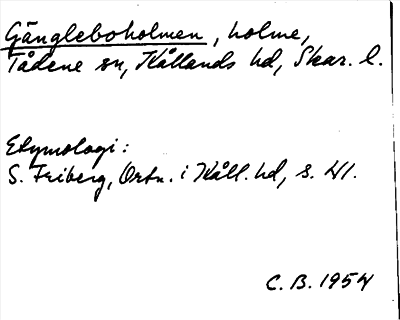 Gängleboholmen, holme,
Tådene sn, Kållands hd, Skar. l.
Etymologi:
S. Friberg, Ortn. i Kåll. hd, s. 41.
C. B. 1954